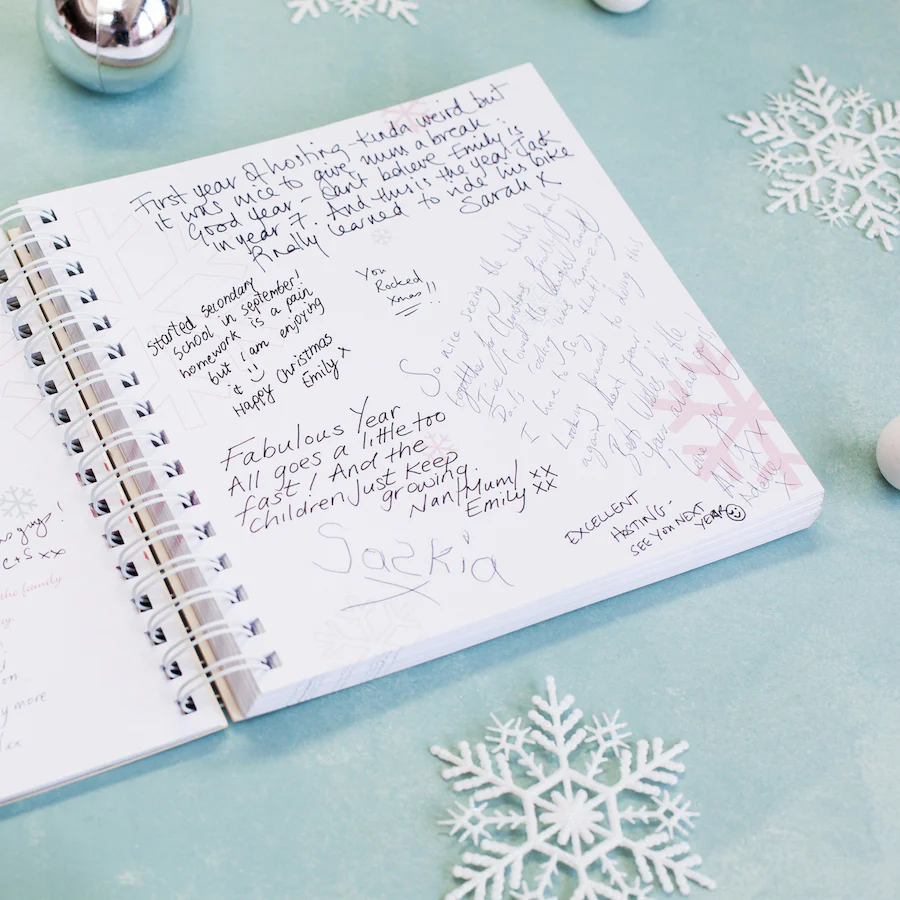 First year of hosting - kinda weird but
it was nice to give mum a break.
Good year - Can't believe Emily is
in year 7. And this is the year Jack
finally learned to ride his bike
Sarah X
Started secondary
school in september!
homework is a pain
but I am enjoying
it
Happy Christmas
Emily x
You
Rocked
Xmas!!
So nice seeing the whole family
together for Christmas finally
I've loved the laughs and
Dad's was amazing
I have to say that!
Looking forward to doing this
again next year
Best Wishes for the
Year ahead
Love Jon
All x x
Adame x
Fabulous Year
All goes a little too
fast! And the
Children just keep
growing.
Nan/Mum/ xx
Emily xx
Saskia
X
EXCELLENT
HOSTING.
SEE YOU NEXT
YEAR ☺
guys!
C+S xx
the family
on
more
xx